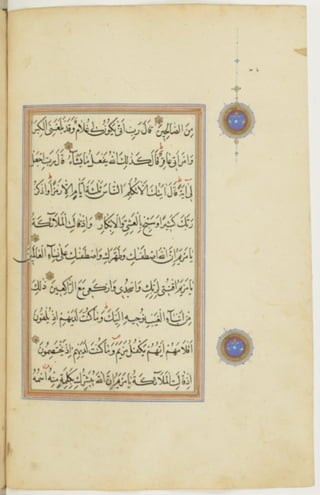 مِنَ الصَّالِحِينَ قَالَ رَبِّ أَنَّى يَكُونُ لِي غُلَامٌ وَقَدْ بَلَغَنِيَ الْكِبَرُ
وَامْرَأَتِي عَاقِرٌ قَالَ كَذَلِكَ اللَّهُ يَفْعَلُ مَا يَشَاءُ قَالَ رَبِّ اجْعَلْ
لِي آيَةً قَالَ آيَتُكَ أَلَّا تُكَلِّمَ النَّاسَ ثَلَاثَةَ أَيَّامٍ إِلَّا رَمْزًا وَاذْكُرْ
رَبَّكَ كَثِيرًا وَسَبِّحْ بِالْعَشِيِّ وَالْإِبْكَارِ وَإِذْ قَالَتِ الْمَلَائِكَةُ
يَا مَرْيَمُ إِنَّ اللَّهَ اصْطَفَاكِ وَطَهَّرَكِ وَاصْطَفَاكِ عَلَى نِسَاءِ الْعَالَمِينَ
يَا مَرْيَمُ اقْنُتِي لِرَبِّكِ وَاسْجُدِي وَارْكَعِي مَعَ الرَّاكِعِينَ ذَلِكَ
مِنْ أَنْبَاءِ الْغَيْبِ نُوحِيهِ إِلَيْكَ وَمَا كُنْتَ لَدَيْهِمْ إِذْ يُلْقُونَ
أَقْلَامَهُمْ أَيُّهُمْ يَكْفُلُ مَرْيَمَ وَمَا كُنْتَ لَدَيْهِمْ إِذْ يَخْتَصِمُونَ
إِذْ قَالَتِ الْمَلَائِكَةُ يَا مَرْيَمُ إِنَّ اللَّهَ يُبَشِّرُكِ بِكَلِمَةٍ مِنْهُ اسْمُهُ